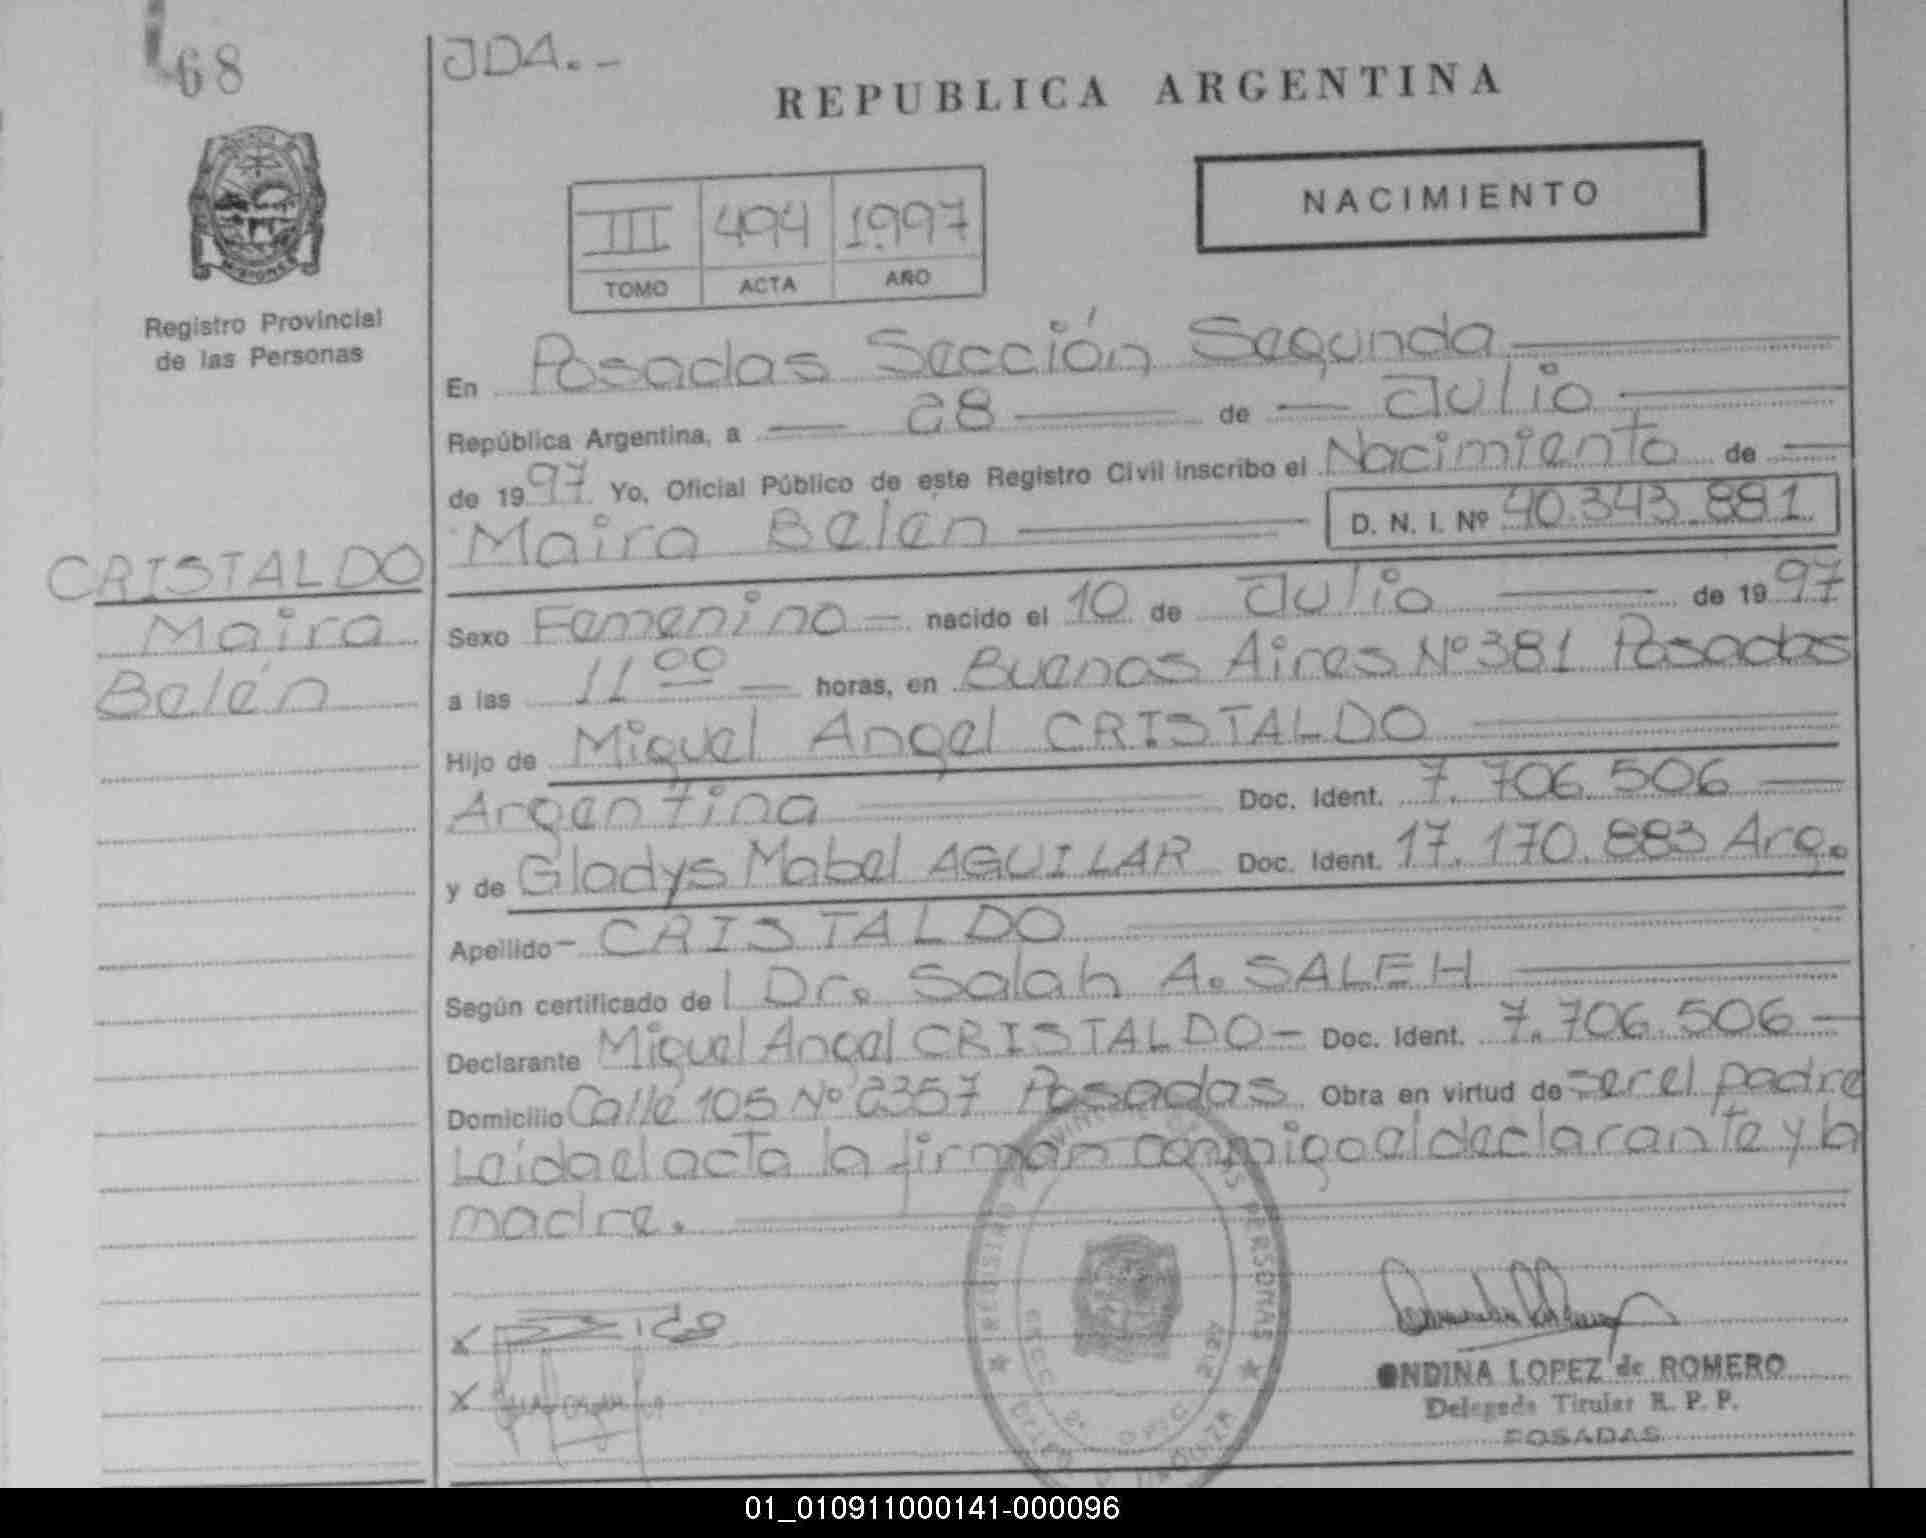 68
JDA.-
REPUBLICA ARGENTINA
NACIMIENTO
III 494 1.997
TOMO ACTA AÑO
MISIONES
Registro Provincial
de las Personas
En Posadas Sección Segunda
República Argentina, a 28 de Julio
de 1997 Yo, Oficial Público de este Registro Civil inscribo el Nacimiento de
Maira Belén D. N. I. Nº 40.343.881
CRISTALDO
Maira
Belén
Sexo Femenino nacido el 10 de Julio de 1997
a las 11 00 horas, en Buenos Aires Nº 381 Posadas
Hijo de Miguel Angel CRISTALDO
Argentina Doc. Ident. 7.706.506
y de Gladys Mabel AGUILAR Doc. Ident. 17.170.883 Arg.
Apellido CRISTALDO
Según certificado del Dr. Salah A. SALEH
Declarante Miguel Angel CRISTALDO Doc. Ident. 7.706.506
Domicilio Calle 105 Nº 2357 Posadas Obra en virtud de ser el padre
Leida el acta la firman conmigo el declarante y la
madre.
REGISTRO PROVINCIAL DE LAS PERSONAS
X
X
ONDINA LOPEZ de ROMERO
Delegada Titular R. P. P.
POSADAS
01_010911000141-000096